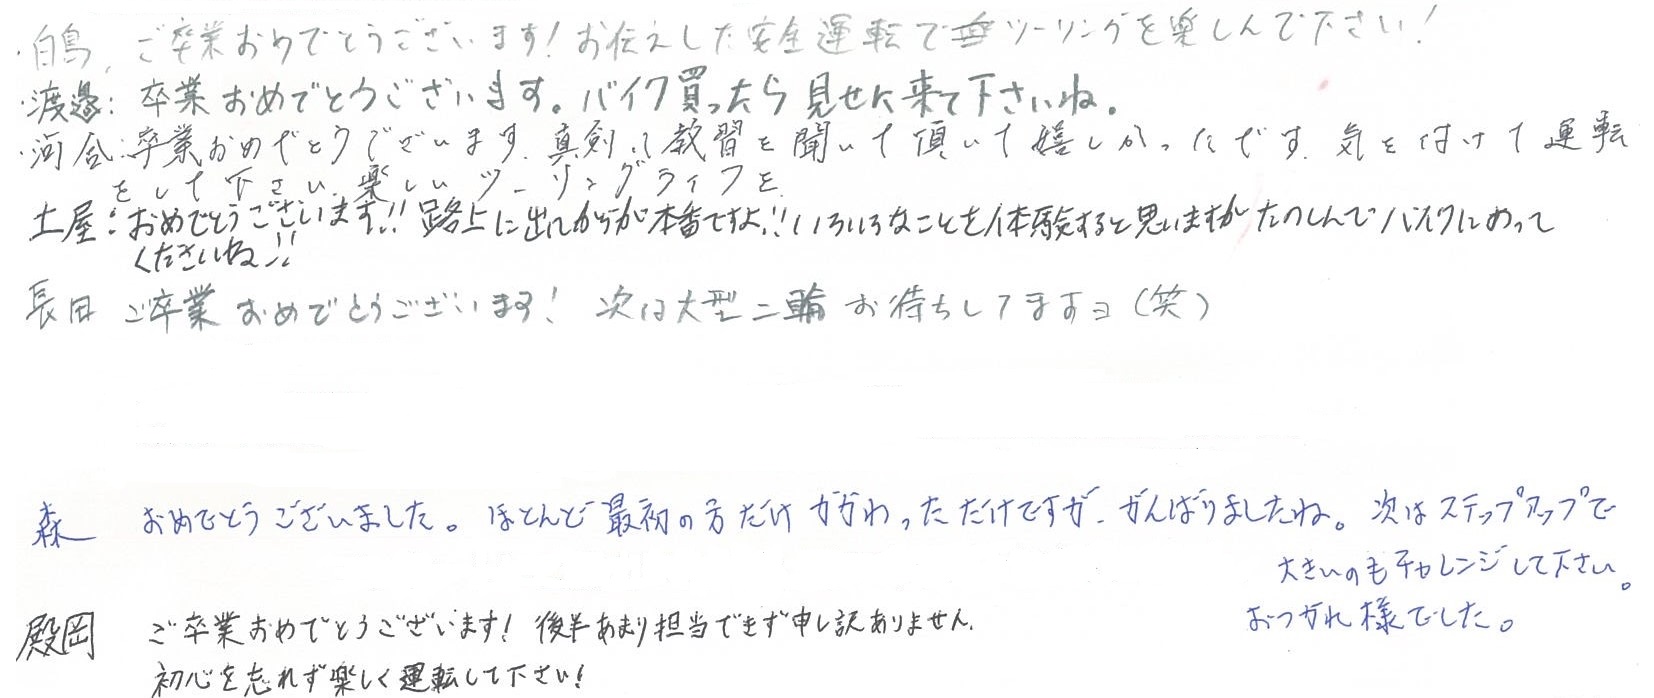 ・白鳥, ご卒業おめでとうございます!お伝えした安全運転でツーリングを楽しんで下さい!
・渡邊:卒業おめでとうございます。バイク買ったら見せに来て下さいね。
・河合:卒業おめでとうございます.真剣に教習を聞いて頂いて嬉しかったです.気を付けて運転
をして下さい.楽しいツーリングライフを.
土屋:おめでとうございます!!路上に出てからが本番ですよ!!いろいろなことを体験すると思いますがたのしんでバイクにのって
くださいね!!
長田 ご卒業おめでとうございます! 次は大型二輪お待ちしてますョ(笑)
森 おめでとうございました。ほとんど最初の方だけかかわっただけですが、がんばりましたね。次はステップアップで
大きいのもチャレンジして下さい。
おつかれ様でした。
殿岡 ご卒業おめでとうございます!後半あまり担当できず申し訳ありません.
初心を忘れず楽しく運転して下さい!